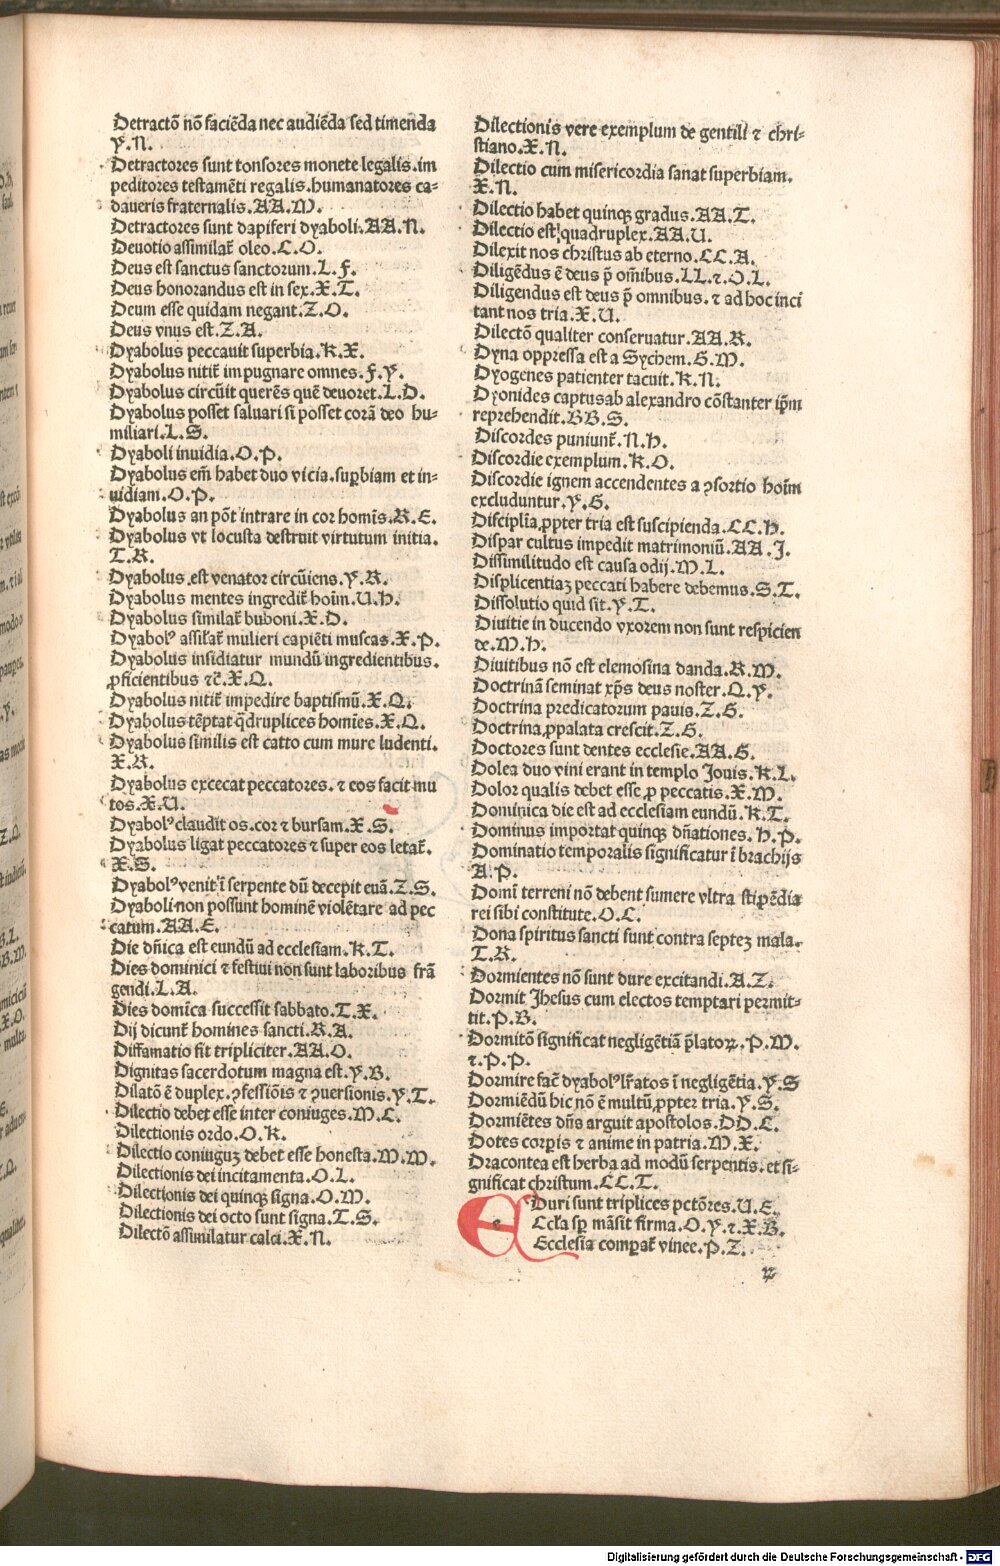 Detractō nō faciēda nec audiēda sed timenda
Y.N.
Detractores sunt tonsores monete legalis.im
peditores testamēti regalis.humanatores ca-
daueris fraternalis.AA.M.
Detractores sunt dapiferi dyaboli.AA.N.
Deuotio assimilat̄ oleo.C.O.
Deus est sanctus sanctorum.L.F.
Deus honorandus est in sex.X.T.
Deum esse quidam negant.Z.O.
Deus vnus est.Z.A.
Dyabolus peccauit superbia.K.X.
Dyabolus nitit̄ impugnare omnes.F.Y.
Dyabolus circūit querēs quē deuoret.L.D.
Dyabolus posset saluari si posset corā deo hu-
miliari.L.S.
Dyaboli inuidia.O.P.
Dyabolus em̄ habet duo vicia.suꝑbiam et in-
uidiam.O.P.
Dyabolus an pōt intrare in cor homīs.R.E.
Dyabolus vt locusta destruit virtutum initia.
T.R.
Dyabolus est venator circūiens.Y.R.
Dyabolus mentes ingredit̄ hoīm.U.H.
Dyabolus similat̄ buboni.X.D.
Dyabolꝰ assilat̄ mulieri capiēti muscas.X.P.
Dyabolus insidiatur mundū ingredientibus.
ꝓficientibus ⁊c̄.X.Q.
Dyabolus nitit̄ impedire baptismū.X.Q.
Dyabolus tēptat q̄druplices homīes.X.Q.
Dyabolus similis est catto cum mure ludenti.
X.R.
Dyabolus excecat peccatores.⁊ eos facit mu
tos.X.U.
Dyabolꝰ claudit os.cor ⁊ bursam.X.S.
Dyabolus ligat peccatores ⁊ super eos letat̄.
X.S.
Dyabolꝰ venit ī serpente dū decepit euā.Z.S.
Dyaboli non possunt hominē violētare ad pec
catum.AA.E.
Die dn̄ica est eundū ad ecclesiam.K.T.
Dies dominici ⁊ festiui non sunt laboribus frā
gendi.L.A.
Dies domīca successit sabbato.T.X.
Dij dicunt̄ homines sancti.R.A.
Diffamatio fit tripliciter.AA.O.
Dignitas sacerdotum magna est.Y.B.
Dilatō ē duplex.ꝯfessiōis ⁊ ꝯuersionis.Y.T.
Dilectio debet esse inter coniuges.M.C.
Dilectionis ordo.O.K.
Dilectio coniuguꝫ debet esse honesta.M.M.
Dilectionis dei incitamenta.O.L.
Dilectionis dei quinqꝫ signa.O.M.
Dilectionis dei octo sunt signa.T.S.
Dilectō assimulatur calci.X.N.
Dilectionis vere exemplum de gentili ⁊ chri-
stiano.X.N.
Dilectio cum misericordia sanat superbiam.
X.N.
Dilectio habet quinqꝫ gradus.AA.T.
Dilectio est quadruplex.AA.U.
Dilexit nos christus ab eterno.CC.A.
Diligēdus ē deus p̄ om̄ibus.LL.⁊.O.L.
Diligendus est deus p̄ omnibus.⁊ ad hoc inci
tant nos tria.X.U.
Dilectō qualiter conseruatur.AA.R.
Dyna oppressa est a Sychem.G.M.
Dyogenes patienter tacuit.K.N.
Dyonides captus ab alexandro cōstanter ip̄m
reprehendit.BB.S.
Discordes puniunt̄.N.H.
Discordie exemplum.K.O.
Discordie ignem accendentes a ꝯsortio hoīm
excluduntur.Y.G.
Disciplīa ꝓpter tria est suscipienda.CC.H.
Dispar cultus impedit matrimoniū.AA.J.
Dissimilitudo est causa odij.M.L.
Displicentiaꝫ peccati habere debemus.S.T.
Dissolutio quid sit.Y.T.
Diuitie in ducendo vxorem non sunt respicien
de.M.H.
Diuitibus nō est elemosina danda.R.M.
Doctrinā seminat xp̄s deus noster.Q.Y.
Doctrina predicatorum pauis.Z.G.
Doctrina ꝓpalata crescit.Z.G.
Doctores sunt dentes ecclesie.AA.G.
Dolea duo vini erant in templo Jouis.K.L.
Dolor qualis debet esse ꝓ peccatis.X.M.
Dominica die est ad ecclesiam eundū.K.T.
Dominus importat quinqꝫ dn̄ationes.H.P.
Dominatio temporalis significatur ī brachijs
A.P.
Domī terreni nō debent sumere vltra stipēdia
rei sibi constitute.O.C.
Dona spiritus sancti sunt contra septeꝫ mala.
T.R.
Dormientes nō sunt dure excitandi.A.Z.
Dormit Jhesus cum electos temptari permit-
tit.P.B.
Dormitō significat negligētiā p̄latoꝝ.P.M.
⁊.P.P.
Dormire fac̄ dyabolꝰ lr̄atos ī negligētia.Y.S
Dormiēdū hic nō ē multū ꝓpter tria.Y.S.
Dormiētes dn̄s arguit apostolos.DD.C.
Dotes corꝑis ⁊ anime in patria.M.X.
Dracontea est herba ad modū serpentis.et si-
gnificat christum.CC.T.
E Duri sunt triplices pctōres.U.E.
Eccl̄a sꝑ māsit firma.O.Y.⁊.X.B.
Ecclesia comꝑat̄ vinee.P.Z.
Digitalisierung gefördert durch die Deutsche Forschungsgemeinschaft - DFG